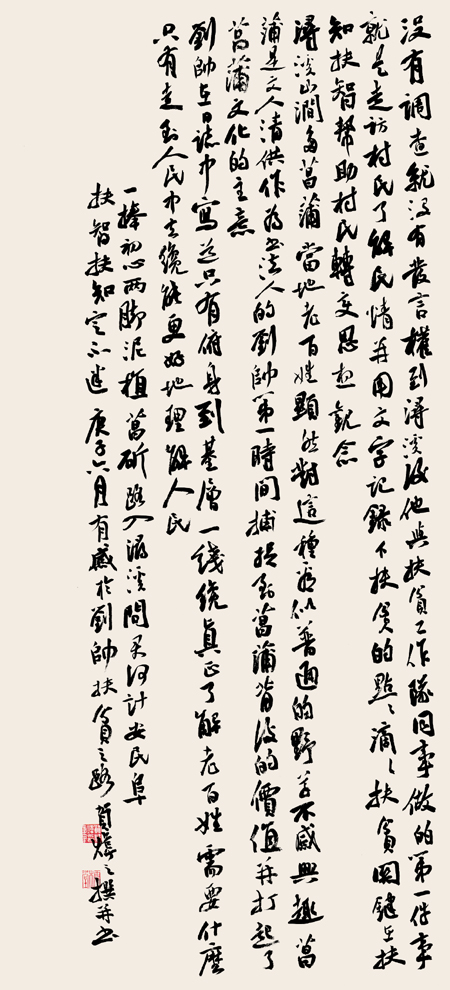 没有調查就没有發言權到潯溪後他與扶貧工作隊同事做的第一件事
就是走訪村民了解民情并用文字記錄下扶貧的點〻滴〻扶貧關鍵在扶
知扶智幫助村民轉變思想觀念
潯溪山澗多菖蒲當地老百姓顯然對這種看似普通的野草不感興趣菖
蒲是文人清供作為書法人的劉帥第一時間捕捉到菖蒲背後的價值并打起了
菖蒲文化的主意
劉帥在日誌中寫道只有俯身到基層一綫纔真正了解老百姓需要什麼
只有走到人民中去纔能更好地理解人民
一捧初心兩腳泥植菖斫路入潯溪問君何計安民阜
扶智扶知定不迷庚子六月有感於劉帥扶貧之路撰并書